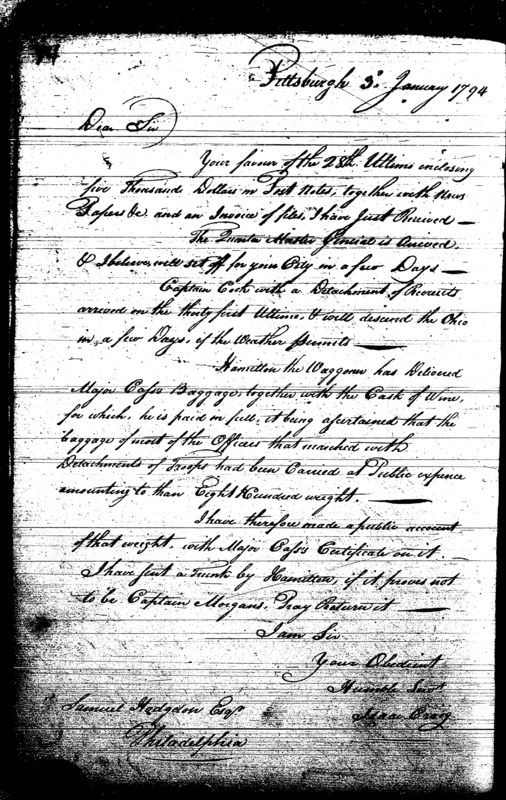 Pittsburgh 3d. January 1794
Dear Sir
Your favour of the 28th. Ultimo inclosing
five Thousand Dollars in Post Notes, together with News
Papers &c. and an Invoice of files, I have Just Received —
The Quarter Master General is Arrived
& I believe will set off for your City in a few Days —
Captain Cook with a Detachment of Recruits
arrived on the thirty first Ultimo, & will descend the Ohio
in a few Days, if the Weather permits —
Hamilton the Waggoner has Delivered
Major Cass's Baggage, together with the Cask of Wine,
for which, he is paid in full, it being ascertained that the
baggage of most of the Officers that marched with
Detachments of Troops had been Carried at Public expence
amounting to than Eight Hundred weight —
I have therefore made a public account
of that weight, with Major Cass's Certificate on it —
I have sent a Trunk by Hamilton, if it proves not
to be Captain Morgans, Pray Return it —
I am Sir
Your Obedient
Humble Servt
Isaac Craig
Samuel Hodgdon Esqr
Philadelphia